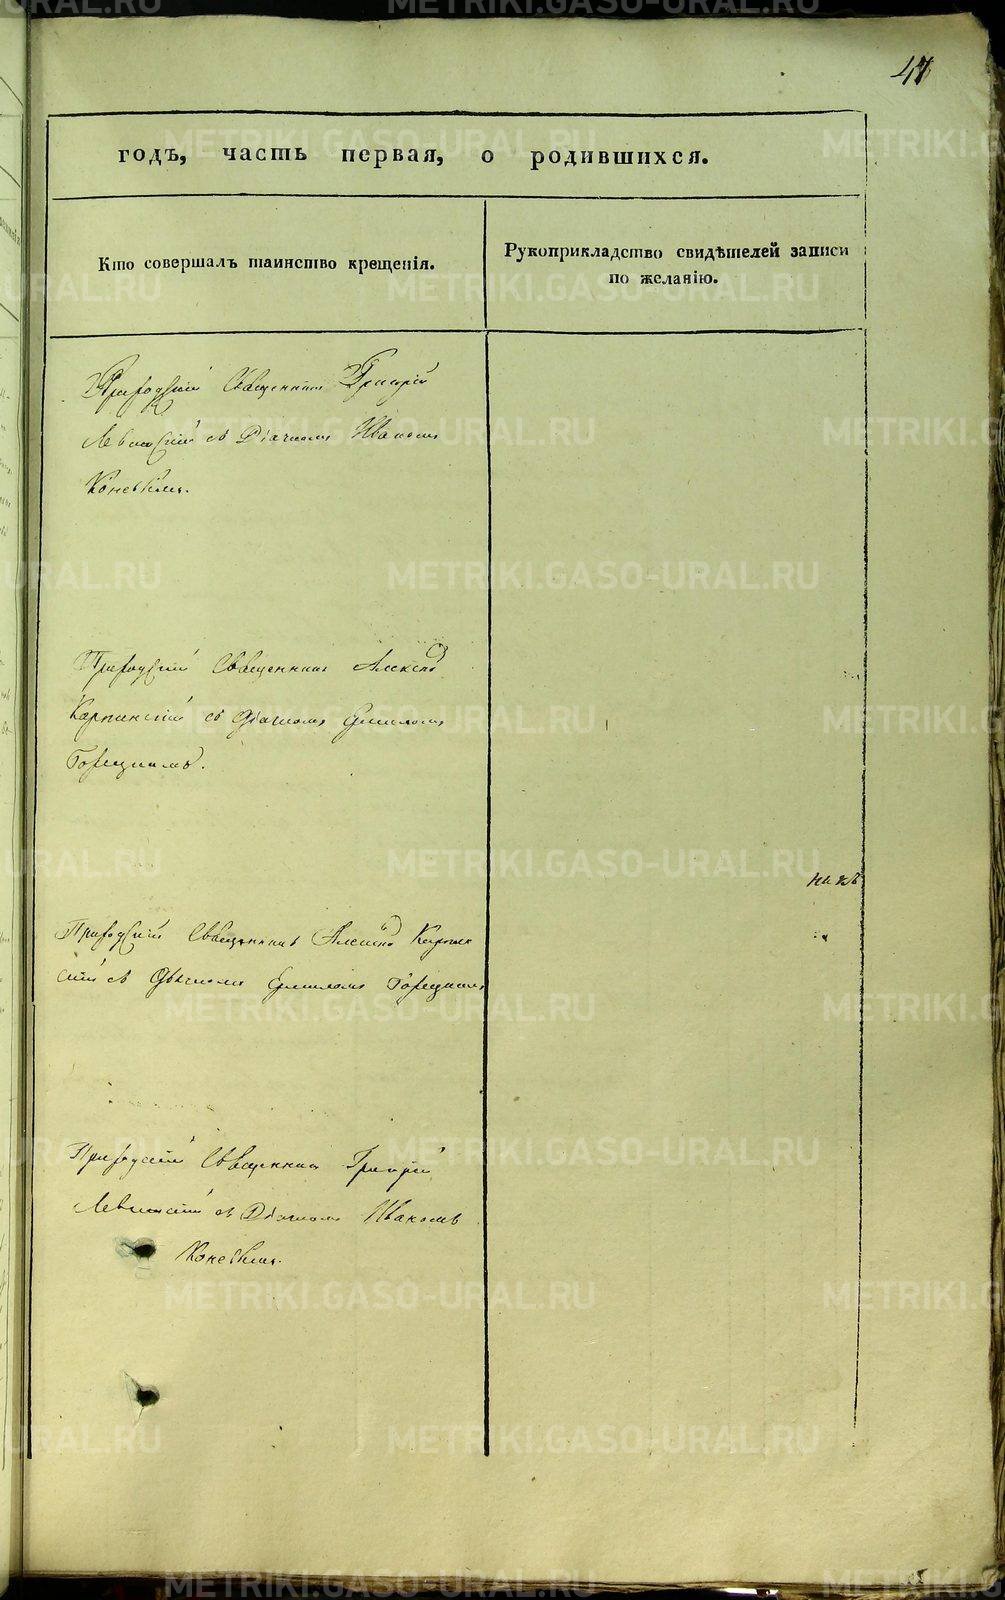 47
годъ, часть первая, о родившихся.
Кто совершалъ таинство крещенія.
Рукоприкладство свидѣтелей записи
по желанію.
Приходскій Священникъ Григорій
Левитскій съ Дьячкомъ Иваномъ
Коневымъ.
Приходскій Священникъ Алексѣй
Карпинскій съ Дьячкомъ Ермиломъ
Горецкимъ.
Приходскій Священникъ Алексѣй Карпин
скій съ Дьячкомъ Ермиломъ Горецкимъ
Приходскій Священникъ Григорій
Левитскій съ Дьячкомъ Иваномъ
Коневымъ.
METRIKI.GASO-URAL.RU